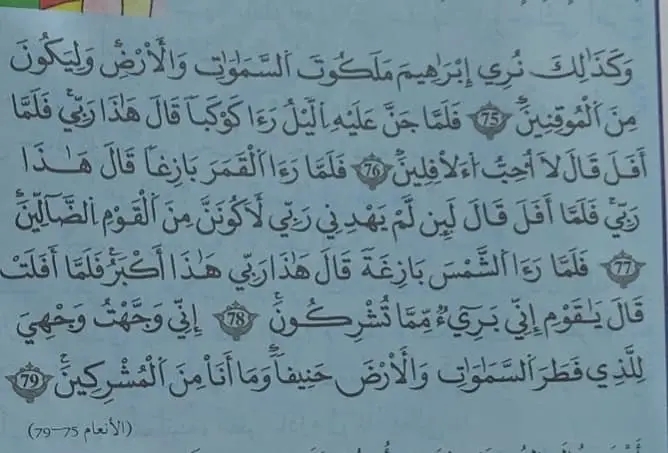 وَكَذَٰلِكَ نُرِي إِبْرَاهِيمَ مَلَكُوتَ اَ۬لسَّمَٰوَٰتِ وَالْأَرْضِۖ وَلِيَكُونَ
مِنَ اَ۬لْمُوقِنِينَۖ 75 فَلَمَّا جَنَّ عَلَيْهِ اِ۬ليْلُ رَءَا كَوْكَباٗ قَالَ هَٰذَا رَبِّيۖ فَلَمَّا
أَفَلَ قَالَ لَا أُحِبُّ اُ۬ءَلْأفِلِينَۖ 76 فَلَمَّا رَءَا اَ۬لْقَمَرَ بَازِغاٗ قَالَ هَٰذَا
رَبِّيۖ فَلَمَّا أَفَلَ قَالَ لَئِن لَّمْ يَهْدِنِي رَبِّي لَأَكُونَنَّ مِنَ اَ۬لْقَوْمِ اِ۬لضَّآلِّينَۖ
77 فَلَمَّا رَءَا اَ۬لشَّمْسَ بَازِغَةٗ قَالَ هَٰذَا رَبِّي هَٰذَا أَكْبَرُۖ فَلَمَّا أَفَلَتْ
قَالَ يَٰقَوْمِ إِنِّي بَرِيٓءٞ مِّمَّا تُشْرِكُونَۖ 78 إِنِّي وَجَّهْتُ وَجْهِيَ
لِلَّذِي فَطَرَ اَ۬لسَّمَٰوَٰتِ وَالْأَرْضَ حَنِيفاٗۖ وَمَا أَنَا مِنَ اَ۬لْمُشْرِكِينَۖ 79
(الأنعام 75-79)